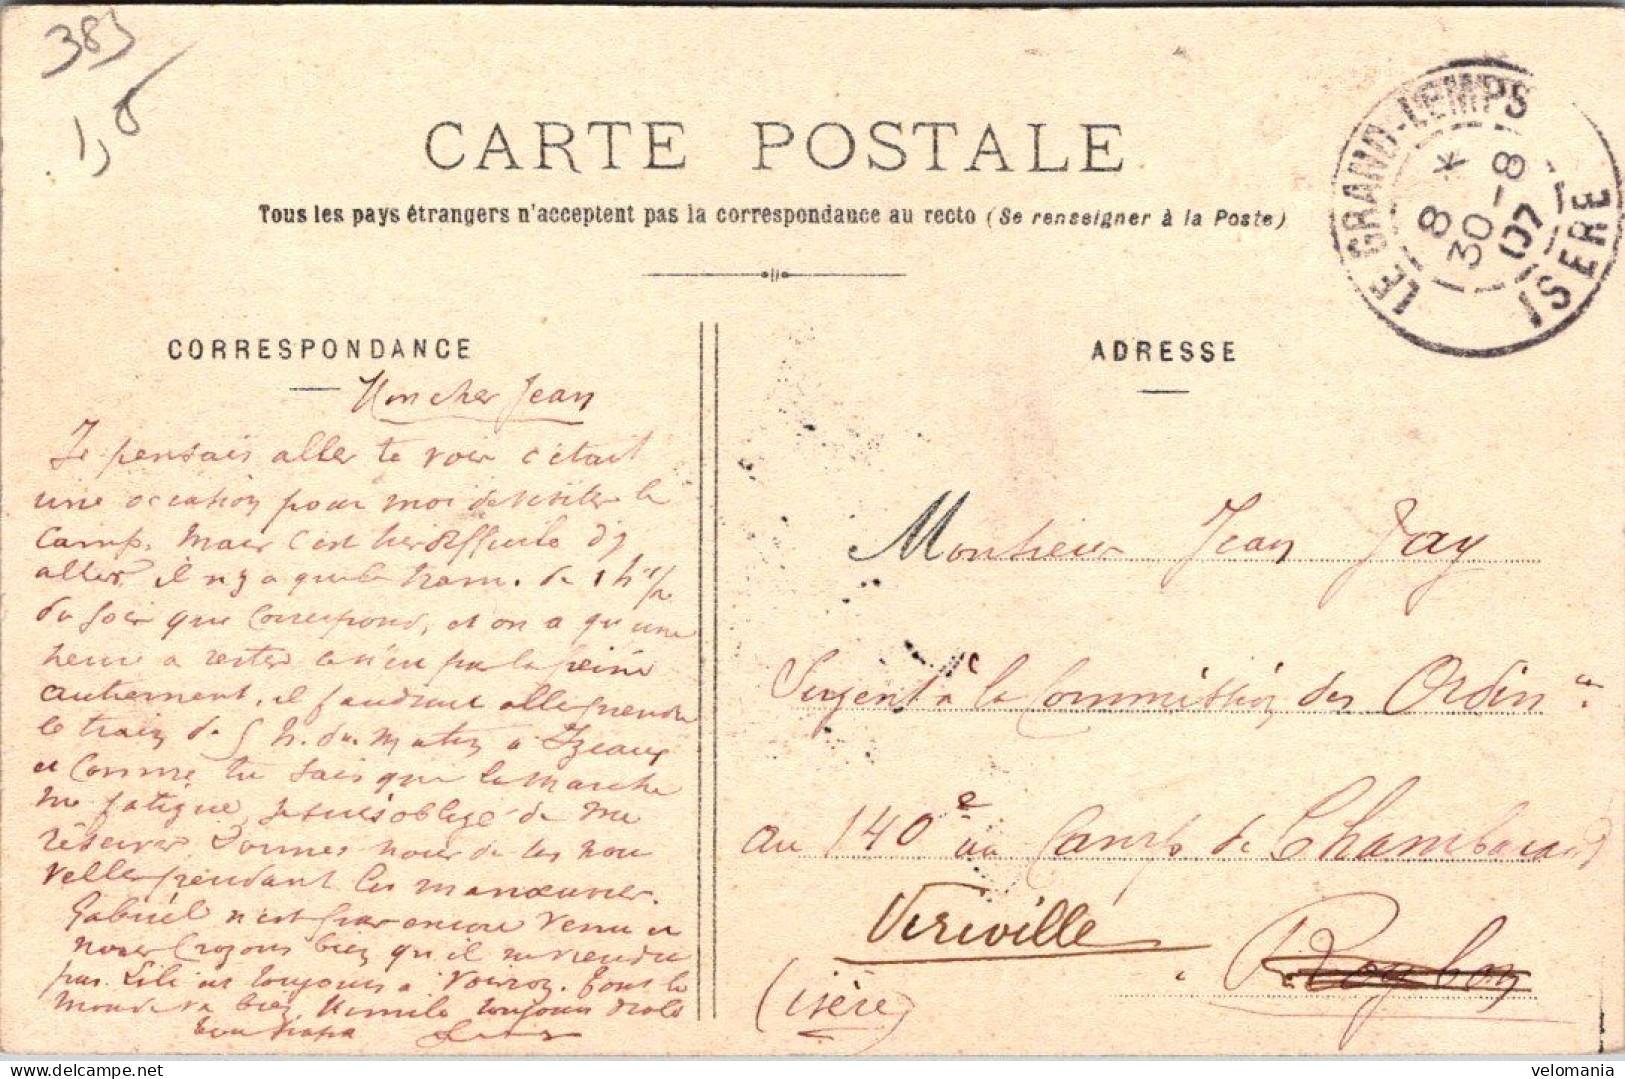 383
1,8
CARTE POSTALE
Tous les pays étrangers n'acceptent pas la correspondance au recto (Se renseigner à la Poste)
LE GRAND-LEMPS
8 *
30-8
07
ISERE
CORRESPONDANCE
Mon cher Jean
Je pensais aller te voir c'était
une occasion pour moi de visiter le
camp. Mais c'est très difficile d'y
aller, il n'y a que le tram. de 1 h 1/2
du soir que correspond, et on a qu'une
heure a rester ce n'est pas la peine
autrement, il faudrait aller prendre
le train de 5 h. du matin a Izeaux
et comme tu sais que la marche
me fatigue, je suis obligé de me
réserver. Donnes nous de tes nou
velles pendant les manœuvres.
Gabriel n'est pas encore venu et
nous croyons bien qu'il ne viendra
pas. Lili est toujours à Voiron. Tout le
monde va bien, toujours drole
Ton papa
ADRESSE
Monsieur Jean Jay
Sergent à la Commission des Ordin.es
au 140e au Camp de Chambarand
Viriville
à Roybon
(isère)
velomania